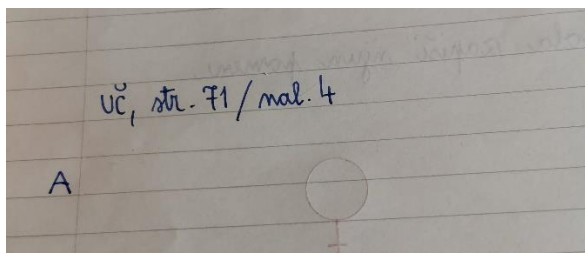 UČ, str. 71 / nal. 4
A